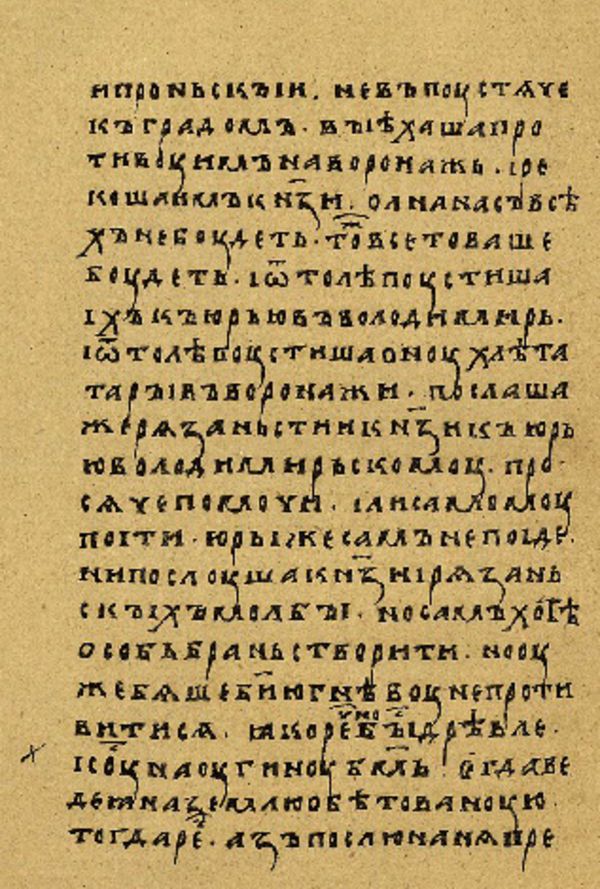 ипроньскъıи. невъпоустѧчє
къградомъ. въıѣхашапро
тивоуимънаворонажь. ıре
кошаимъкн҃ꙁи. олинасъвсѣ
хънебоудеть. то̅всетоваше
боудеть. ıѿтолѣпоустиша
ıхъкъюрьювъволодимирь.
ıѿтолѣпоустишаоноухлѣта
таръıвъворонажи. послаша
жерѧꙁаньстиикн҃ꙁикъюрь
юволодимирьскомоу. про
сѧчепомочи. ıлисамомоу
поıти. юрьıжесамънепоıде.
нипослоушакн҃ꙁиıрѧꙁань
скъıхъмолбъı. носамъхотѣ
особьбраньстворити. нооу
жебѧшеби҃югнѣвоунепроти
витисѧ. ꙗкорече҃бъı҃дрѣвле.
ıсоу҃наоугиноубм҃ь. егдаве
деꙗнаꙁемлюобѣтованоую
тогдарече҃. аꙁъпослюнанѧпре